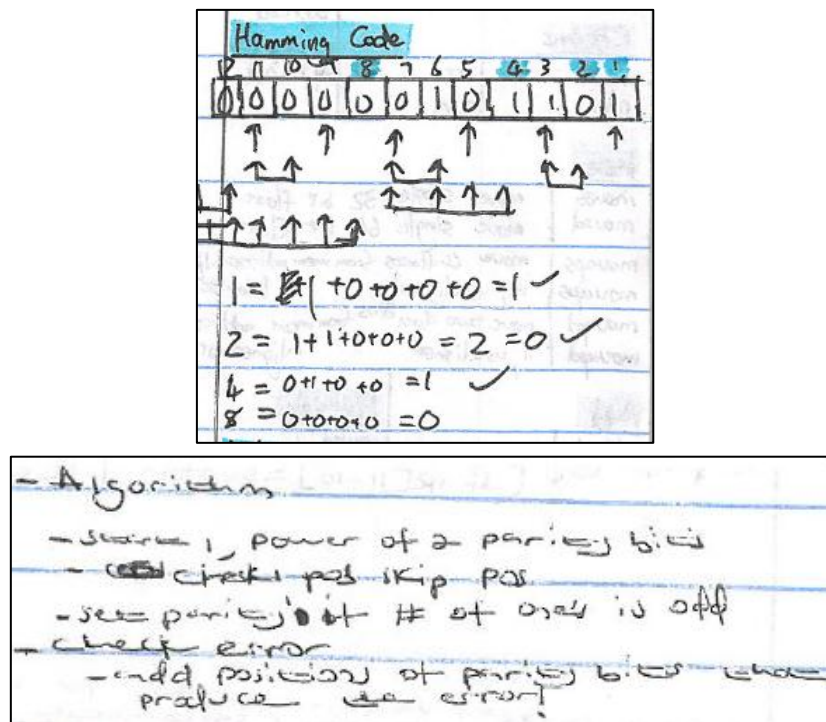 Hamming Code
12 11 10 9 8 7 6 5 4 3 2 1
0 0 0 0 0 0 1 0 1 1 0 1
1 = 1 +0+0+0+0 =1 ✓
2 = 1+1+0+0+0 = 2 =0 ✓
4 = 0+1+0+0 =1 ✓
8 = 0+0+0+0 =0
- Algorithm
- 1, power of 2 parity bits
- check 1 pos skip pos
- set parity if # of ones is odd
- check error
- add positions of parity bits that
produce error!